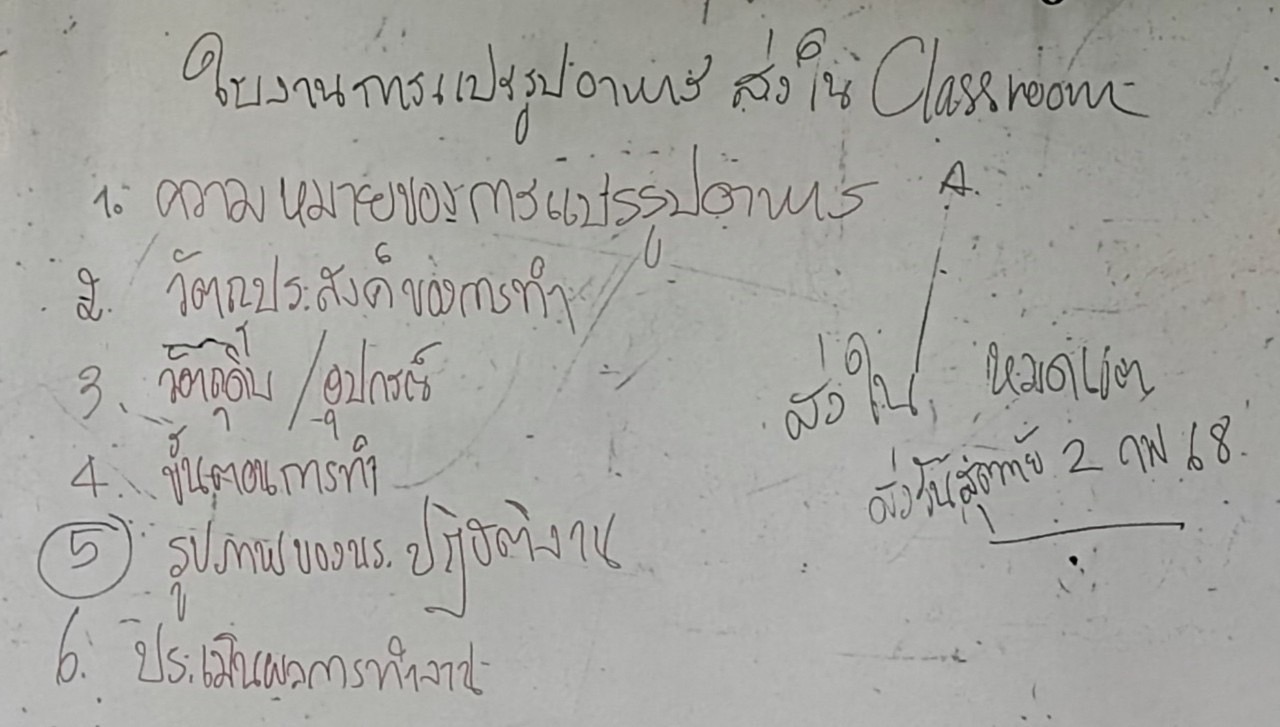 ใบงานการแปรรูปอาหาร ส่งใน Classroom
1. ความหมายของการแปรรูปอาหาร
A.
2. วัตถุประสงค์ของการทำ
3. วัตถุดิบ / อุปกรณ์
ส่งใน หมดเขต
4. ขั้นตอนการทำ
ส่งวันสุดท้าย 2 กพ 68.
5 รูปภาพของนร. ปฏิบัติงาน
6. ประเมินผลการทำงาน